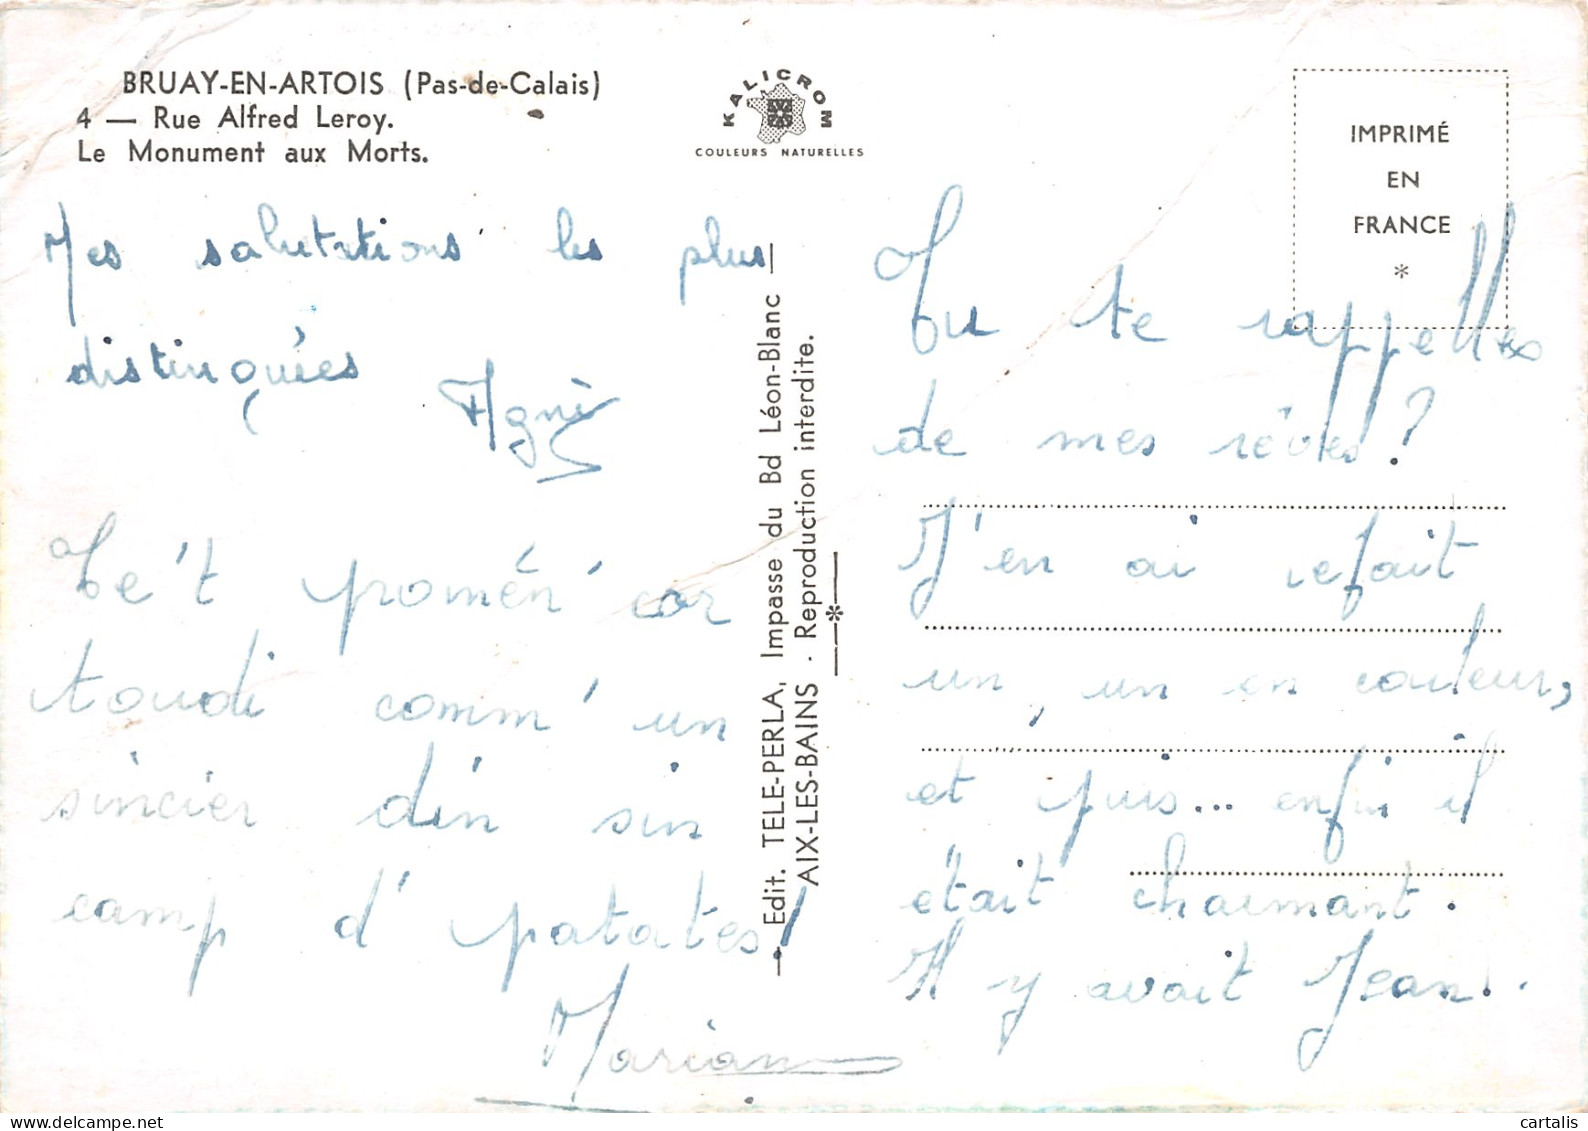 BRUAY-EN-ARTOIS (Pas-de-Calais)
4 — Rue Alfred Leroy.
Le Monument aux Morts.
KALICROM
COULEURS NATURELLES
IMPRIMÉ
EN
FRANCE
*
Mes salutations les plus
distinguées
Agnès
Te't promén' cor
toudi comm' un
sincier din sin
camp d' patates!
Marian
Edit. TELE-PERLA, Impasse du Bd Léon-Blanc
AIX-LES-BAINS . Reproduction interdite.
*
Tu te rappelles
de mes rêves?
J'en ai refait
un, un en couleur,
et puis... enfin il
était charmant.
Il y avait Jean!..
cartalis